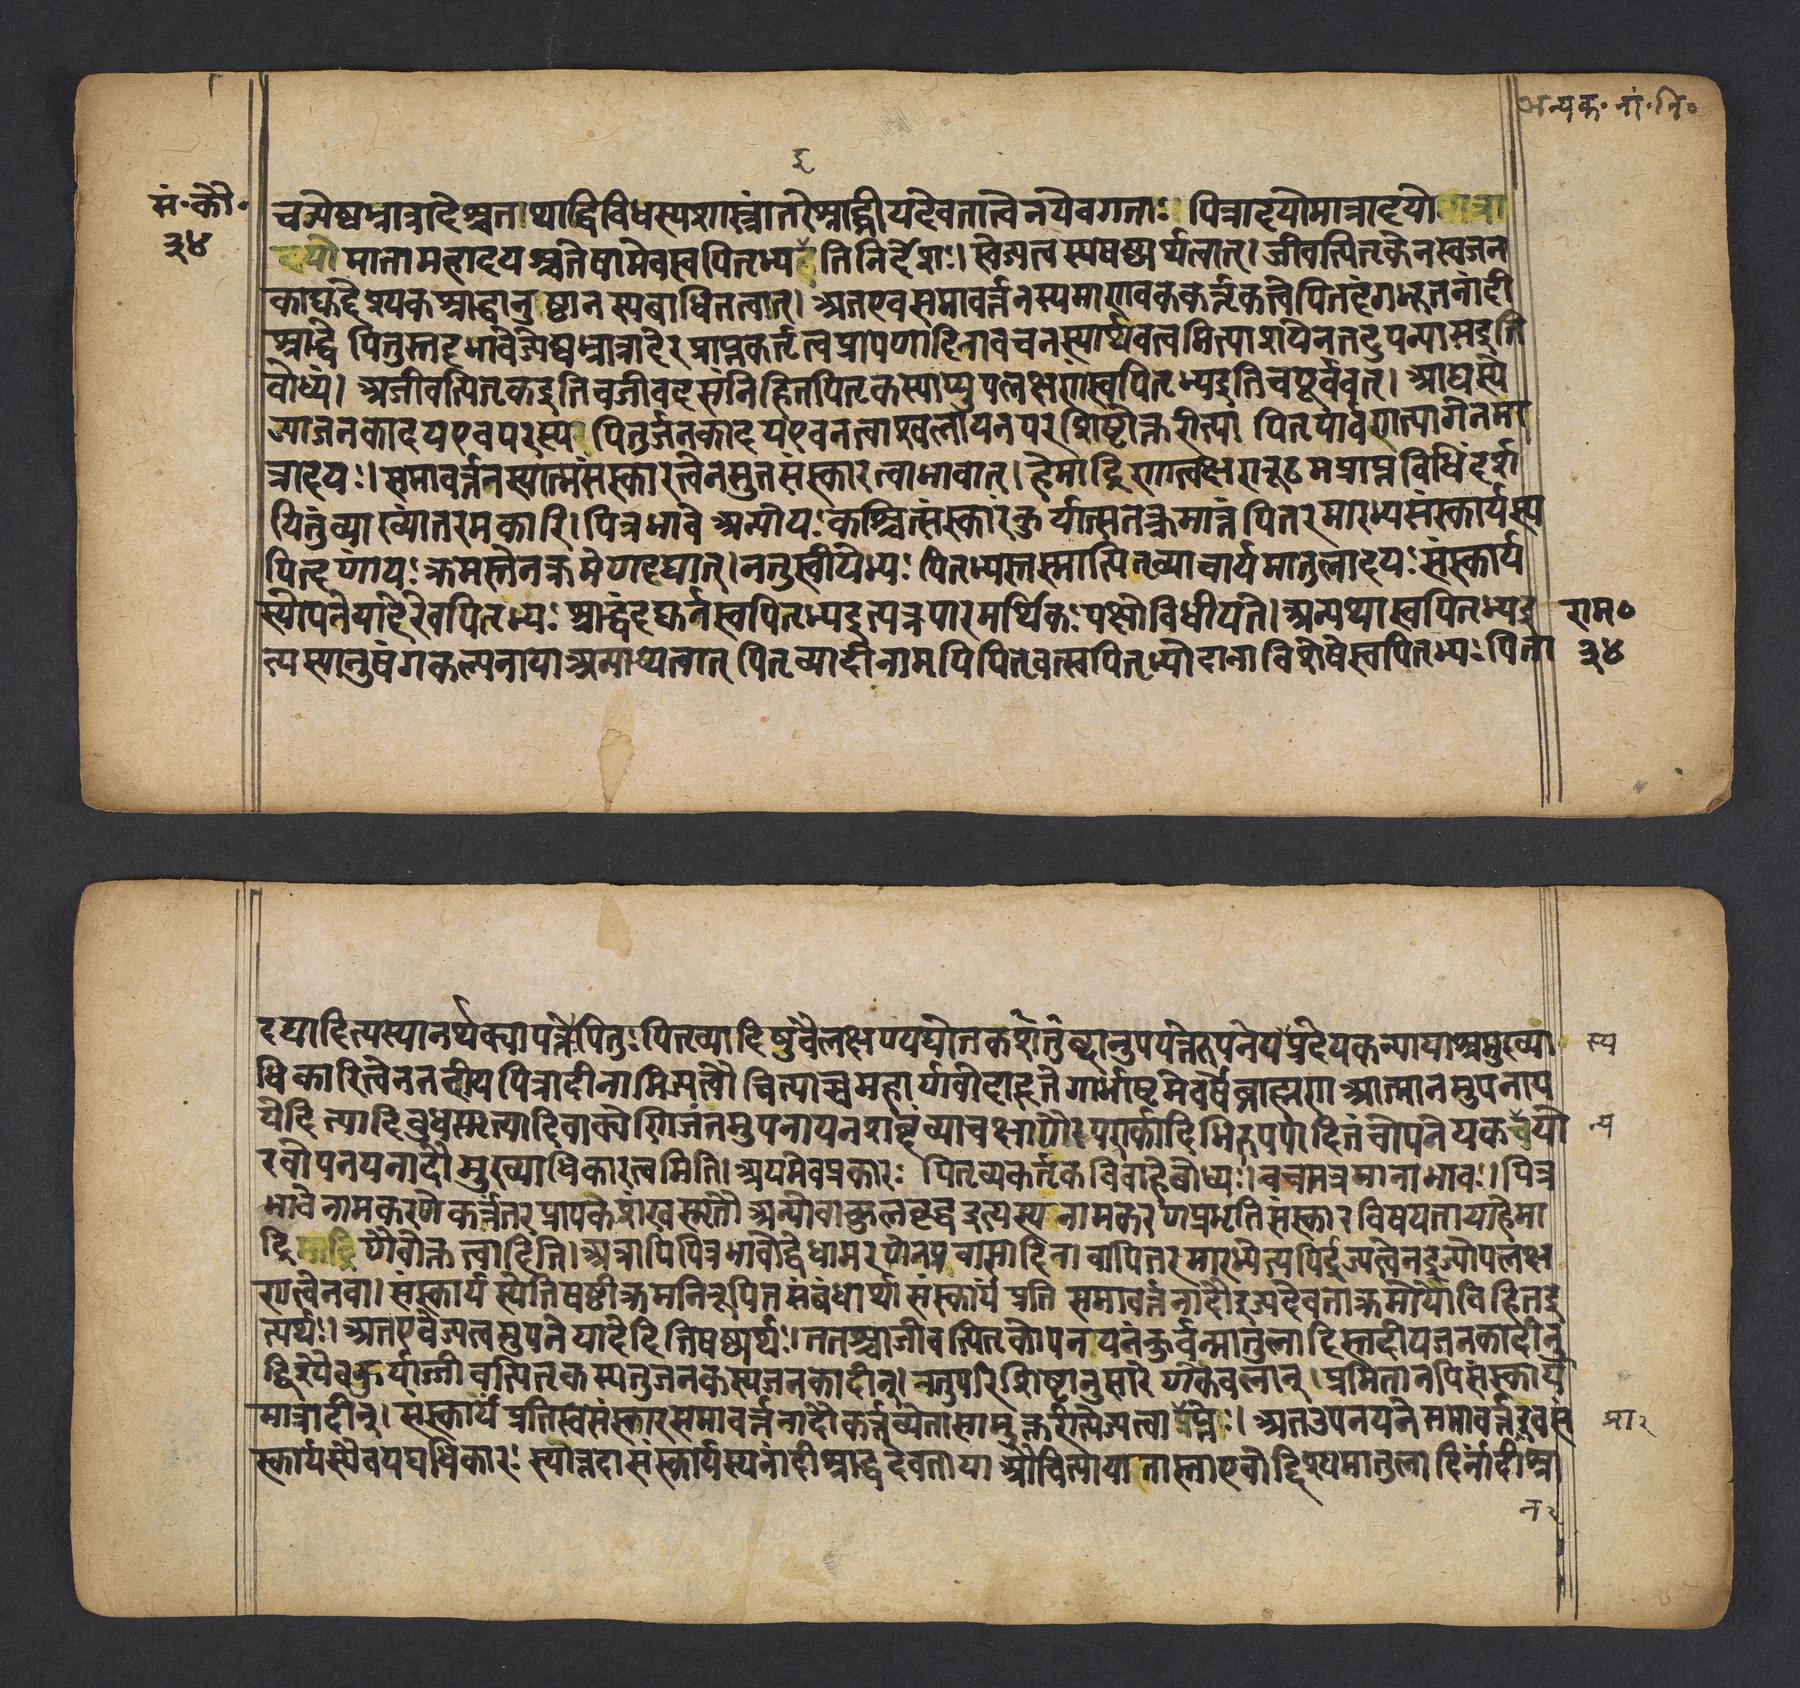 अन्यक॰ नां॰ नि॰
इ
सं॰ कौ॰
३४
चज्येष्ठभ्रात्रादेश्चता थाद्विविधस्यशास्त्रांतरेश्राद्धीयदेवतात्वेनयेवगताः। पित्रादयोमात्रादयो
दयो मातामहादयश्चतेषामेवस्वपितृभ्यइतिनिर्देशः। स्वेज्यत्वस्यषष्ठ्यर्थत्वात्। जीवत्पितृकेनस्वजन
काद्युद्देश्यकश्राद्धानुष्ठानस्यबाधितत्वात्। अतएवसमावर्त्तनस्यमाणवककर्तृकत्वेपितृदंगभूतनांदी
श्राद्धे पितुस्तदभावेज्येष्ठभ्रात्रादेरप्राप्तकर्तृत्वप्रापणादिनावचनस्यार्थवत्वमित्याशयेनतदुपन्यासइति
बोध्यं। अजीवत्पितृकइतिवजीवदसंनिहितपितृकस्याप्युपलक्षणंस्वपितृभ्यइतिचपूर्ववत्। आद्यस्ये
आजनकादयएवपरस्य पितुर्जनकादयएवनत्वाश्वलायनपरिशिष्टोक्तरीत्या पितृपार्वणत्यागेनमा
त्रादयः। समावर्त्तनस्यात्मसंस्कारत्वेनसुतसंस्कारत्वाभावात्। हेमाद्रिणात्वक्षरारूढमप्राप्तविधिंदर्श
यितुंव्याख्यांतरमकारि। पित्रभावे अन्योयः कश्चित्संस्कारंकुर्यात्सतत्क्रमान्नं पितरमारभ्यसंस्कार्यस्य
पितॄणांयः क्रमस्तेनक्रमेणदद्यात्। नतुस्वीयेभ्यः पितृभ्यस्तस्मात्पितृव्याचार्यमातुलादयः संस्कार्य
स्योपनेयादेरेवपितृभ्यः श्राद्धंदद्युर्नस्वपितृभ्यइत्यत्रपारमार्थिकः पक्षोविधीयते। अन्यथास्वपितृभ्यइ
त्यस्यानुषंगकल्पनायाअन्याय्यत्वात् पितृव्यादीनामपिपितृवत्स्वपितृभ्योदानाविशेषेस्वपितृभ्यः पिता
राम॰
३४
दद्यादित्यस्यानर्थक्यापत्तेः पितुः पितृव्यादिषुवैलक्षण्यद्योतकशतुंब्दानुपपत्तेरुपनेयप्रदेयकन्यायाश्चमुख्या
धिकारित्वेनतदीयपित्रादीनामिज्यत्वौचित्याच्चमहार्याविदाहृते गार्भाष्टमेवर्षेब्राह्मण आत्मानमुपनाय
येदित्यादिबुधस्मृत्यादिवाक्येणिजंतमुपनायनशब्दंव्याचक्षाणैरपरार्कादिभिरुपपादितंचोपनेयकन्ययो
रेवोपनयनादौमुख्याधिकारत्वमिति। अयमेवप्रकारः पितृव्यकर्तृकविवाहेबोध्यः। वचमत्रमानाभावः। पित्र
भावेनामकरणेकर्त्रंतरप्रापकेशंखस्मृतौ अन्योवाकुलवृद्धइत्यस्यनामकरणप्रभृतिसंस्कारविषयतायाहेमा
द्रि णैवोक्तत्वादिति। अत्रापिपित्रभावोद्वेधामरणेनप्रवासादिना वापितरमारभ्येत्यपिर्इज्यत्वेनइज्योपलक्ष
णत्वेनवा। संस्कार्यस्येतिषष्ठीक्रमनिरूपितसंबंधार्था संस्कार्यं प्रति समावर्त्तनादौइज्यदेवताक्रमोयोविहितइ
त्यर्थः। अतएवेज्यत्वमुपनेयादेरितिषष्ठ्यर्थः। ततश्चाजीवत्पितृकोपनायनंकुर्वन्मातुलादिस्तदीयजनकादीनु
द्दिश्यैवकुर्याज्जीवत्पितृकस्यतुजनकस्यजनकादीन्। नतुपरिशिष्टानुसारेणकेवलान्। प्रमितानपिसंस्कार्य
मात्रादीन्। संस्कार्यं प्रतिस्वसंस्कारसमावर्त्तनादौकर्त्तव्येतासामुक्तरीत्येज्यत्वाप्राप्तेः। अतउपनयनेसमावर्त्तनएवसं
स्कार्यस्यैवयद्यधिकारः स्यात्तदासंस्कार्यस्यनांदीश्राद्धदेवतायाऔचित्यायातास्ताएवोद्दिश्यमातुलादिर्नांदीश्रा
स्य
न्य
न